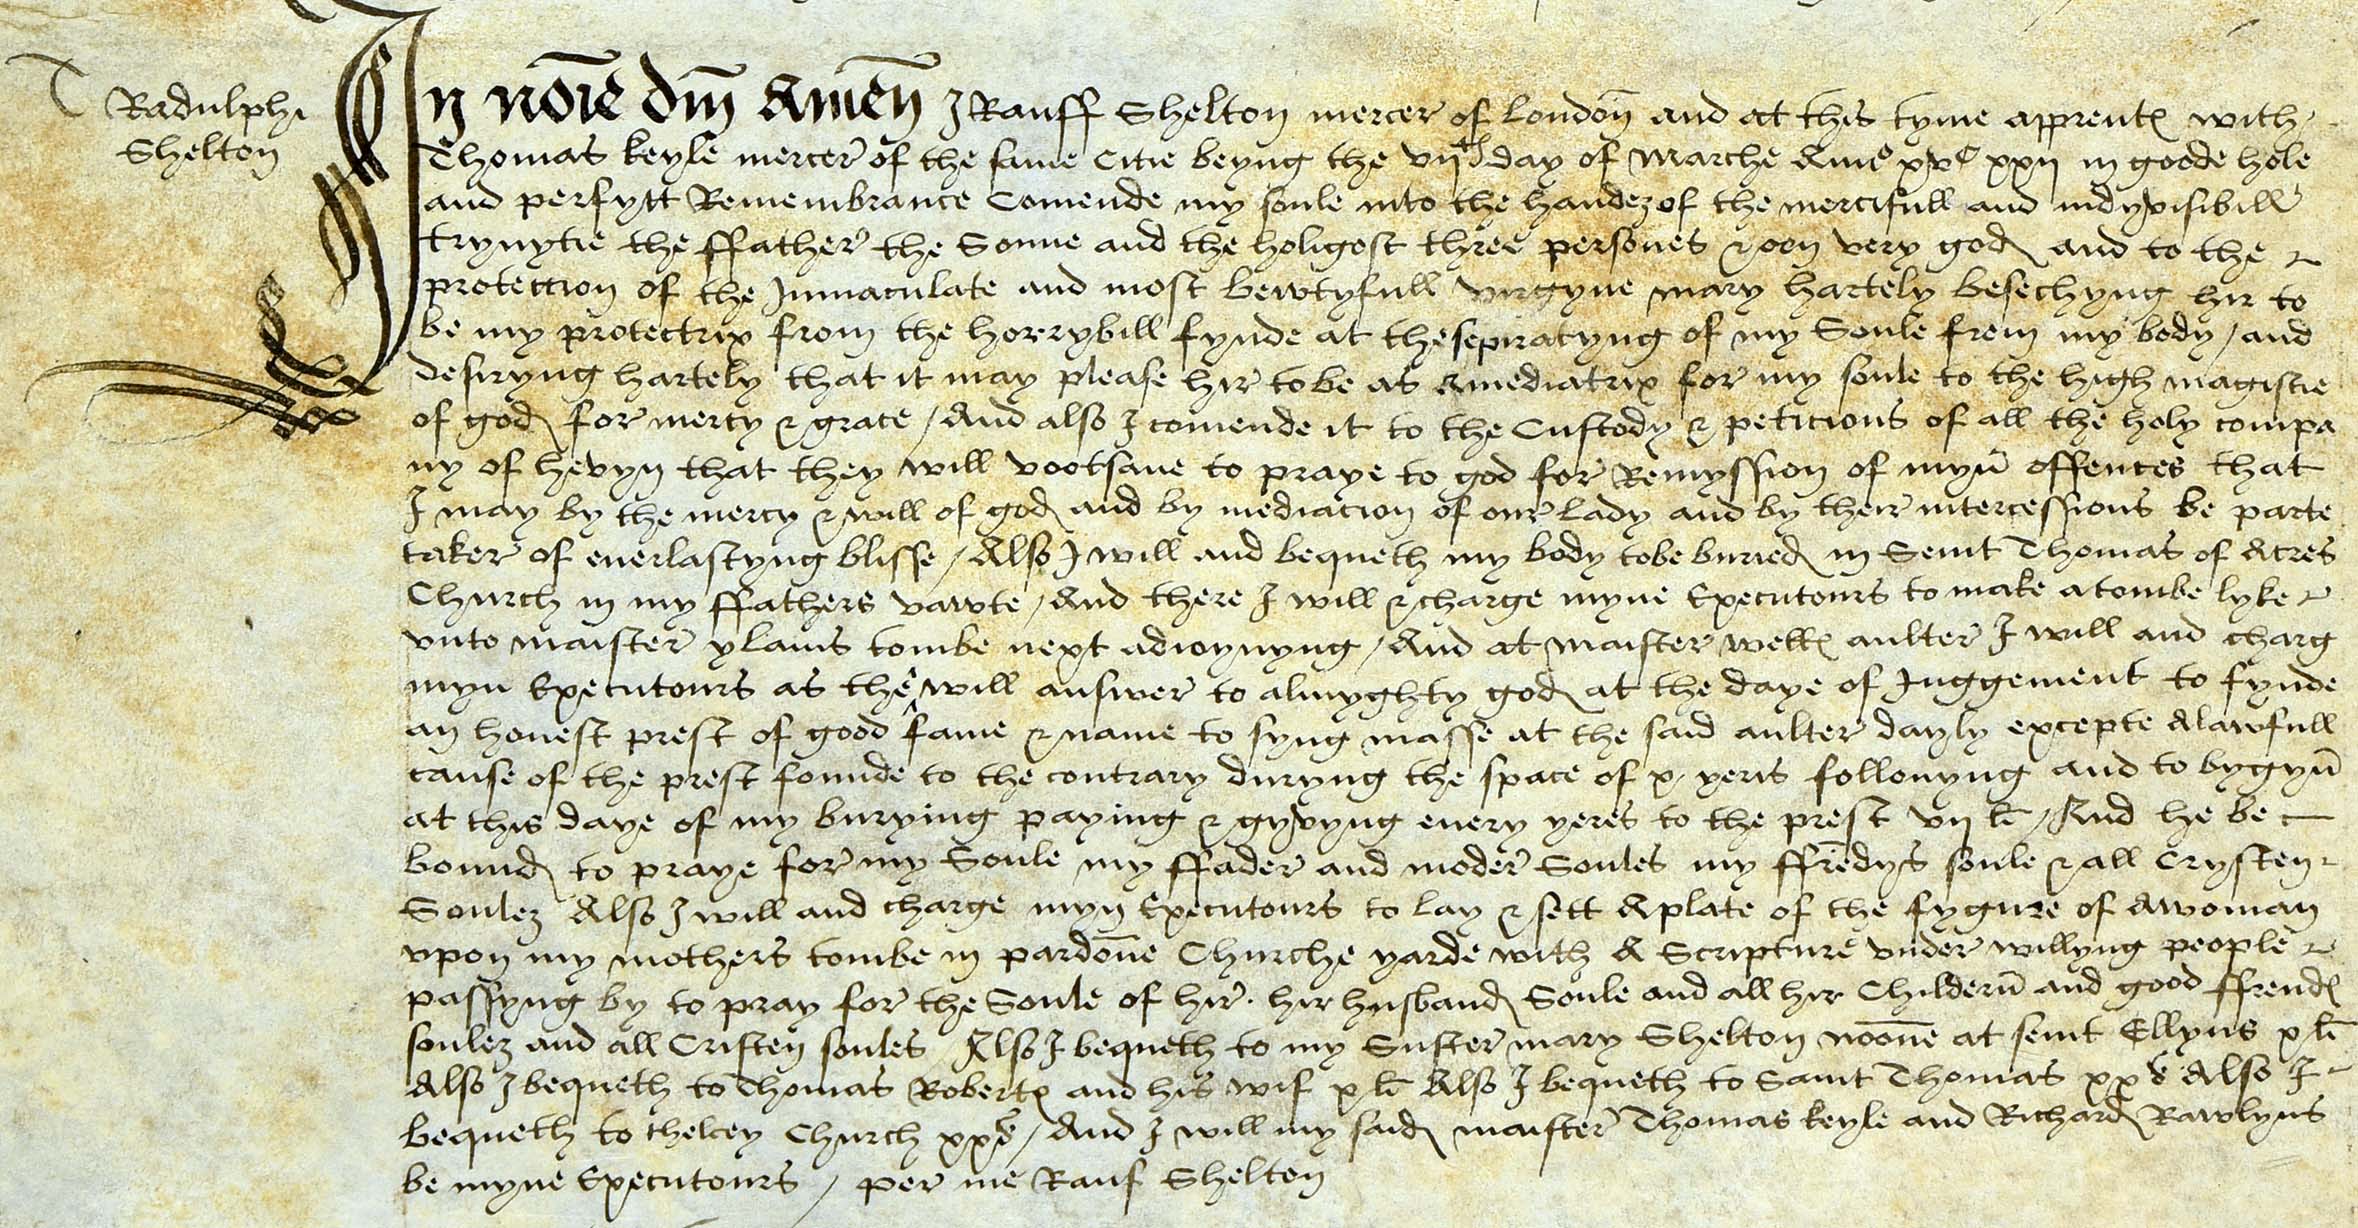 T Radulphi
Shelton
In no͞ie dn͞i Ame͞n I Rauff Shelton mercer of london̄ and at this tyme apprent with
Thomas keyle mercer of the same Citie beyng the vijth day of Marche Anno xvc xxij in goode hole
and perfytt Remembrance Comende my soule into the handez of the mercifull and indyvisibill
trynytie the ffather the Sonne and the holigost three persones & oon very god and to the
protection of the Inmaculate and most bewtyfull virgyne mary hartely besechyng hir to
be my protectrix from the horrybill fynde at the sepiratyng of my Soule frem my body / and
desiryng hartely that it may please hir to be as A mediatrix for my soule to the high magistie
of god for mercy & grace / And also I comende it to the Custody & peticions of all the holy compa
ny of hevyn that they will vootsaue to praye to god for Remyssion of myn̄ offences that
I may by the mercy & will of god and by mediacion of our lady and by their intercessions be parte
taker of euerlastyng blisse / Also I will and bequeth my body to be buried in Seint Thomas of Acres
Church in my ffathers vawte / And there I will & charge myne Executours to make a tombe lyke
vnto maister ylams tombe next adioynyng / And at maister well aulter I will and charg
myn Executours as the will answer to almyghty god at the daye of Iuggement to fynde
an honest prest of good fame & name to syng masse at the said aulter dayly excepte A lawfull
cause of the prest founde to the contrary duryng the space of x yeris follouyng and to bygyn̄
at this daye of my burying paying & gyvyng euery yeres to the prest vij li / And he be
bound to praye for my Soule my ffader and moder Soules my ffre͞dys soule & all Crysten
Soulez Also I will and charge myn Executours to lay & sett A plate of the fygure of A woman
vpon my mothers tombe in pardon̄e Churche yarde with A Scripture vnder willyng people
passyng by to pray for the Soule of hir . hir husband Soule and all hir Childern̄ and good ffrend
soulez and all Cristen soules / Also I bequeth to my Suster mary Shelton noon̄e at seint Ellyns x li
Also I bequeth to Thomas Robert and his wif x li Also I bequeth to Saint Thomas xx s Also I
bequeth to chelcey Church xx s / And I will my said maister Thomas keyle and Richard Rawlyns
be myne Executours / per me Rauf Shelton